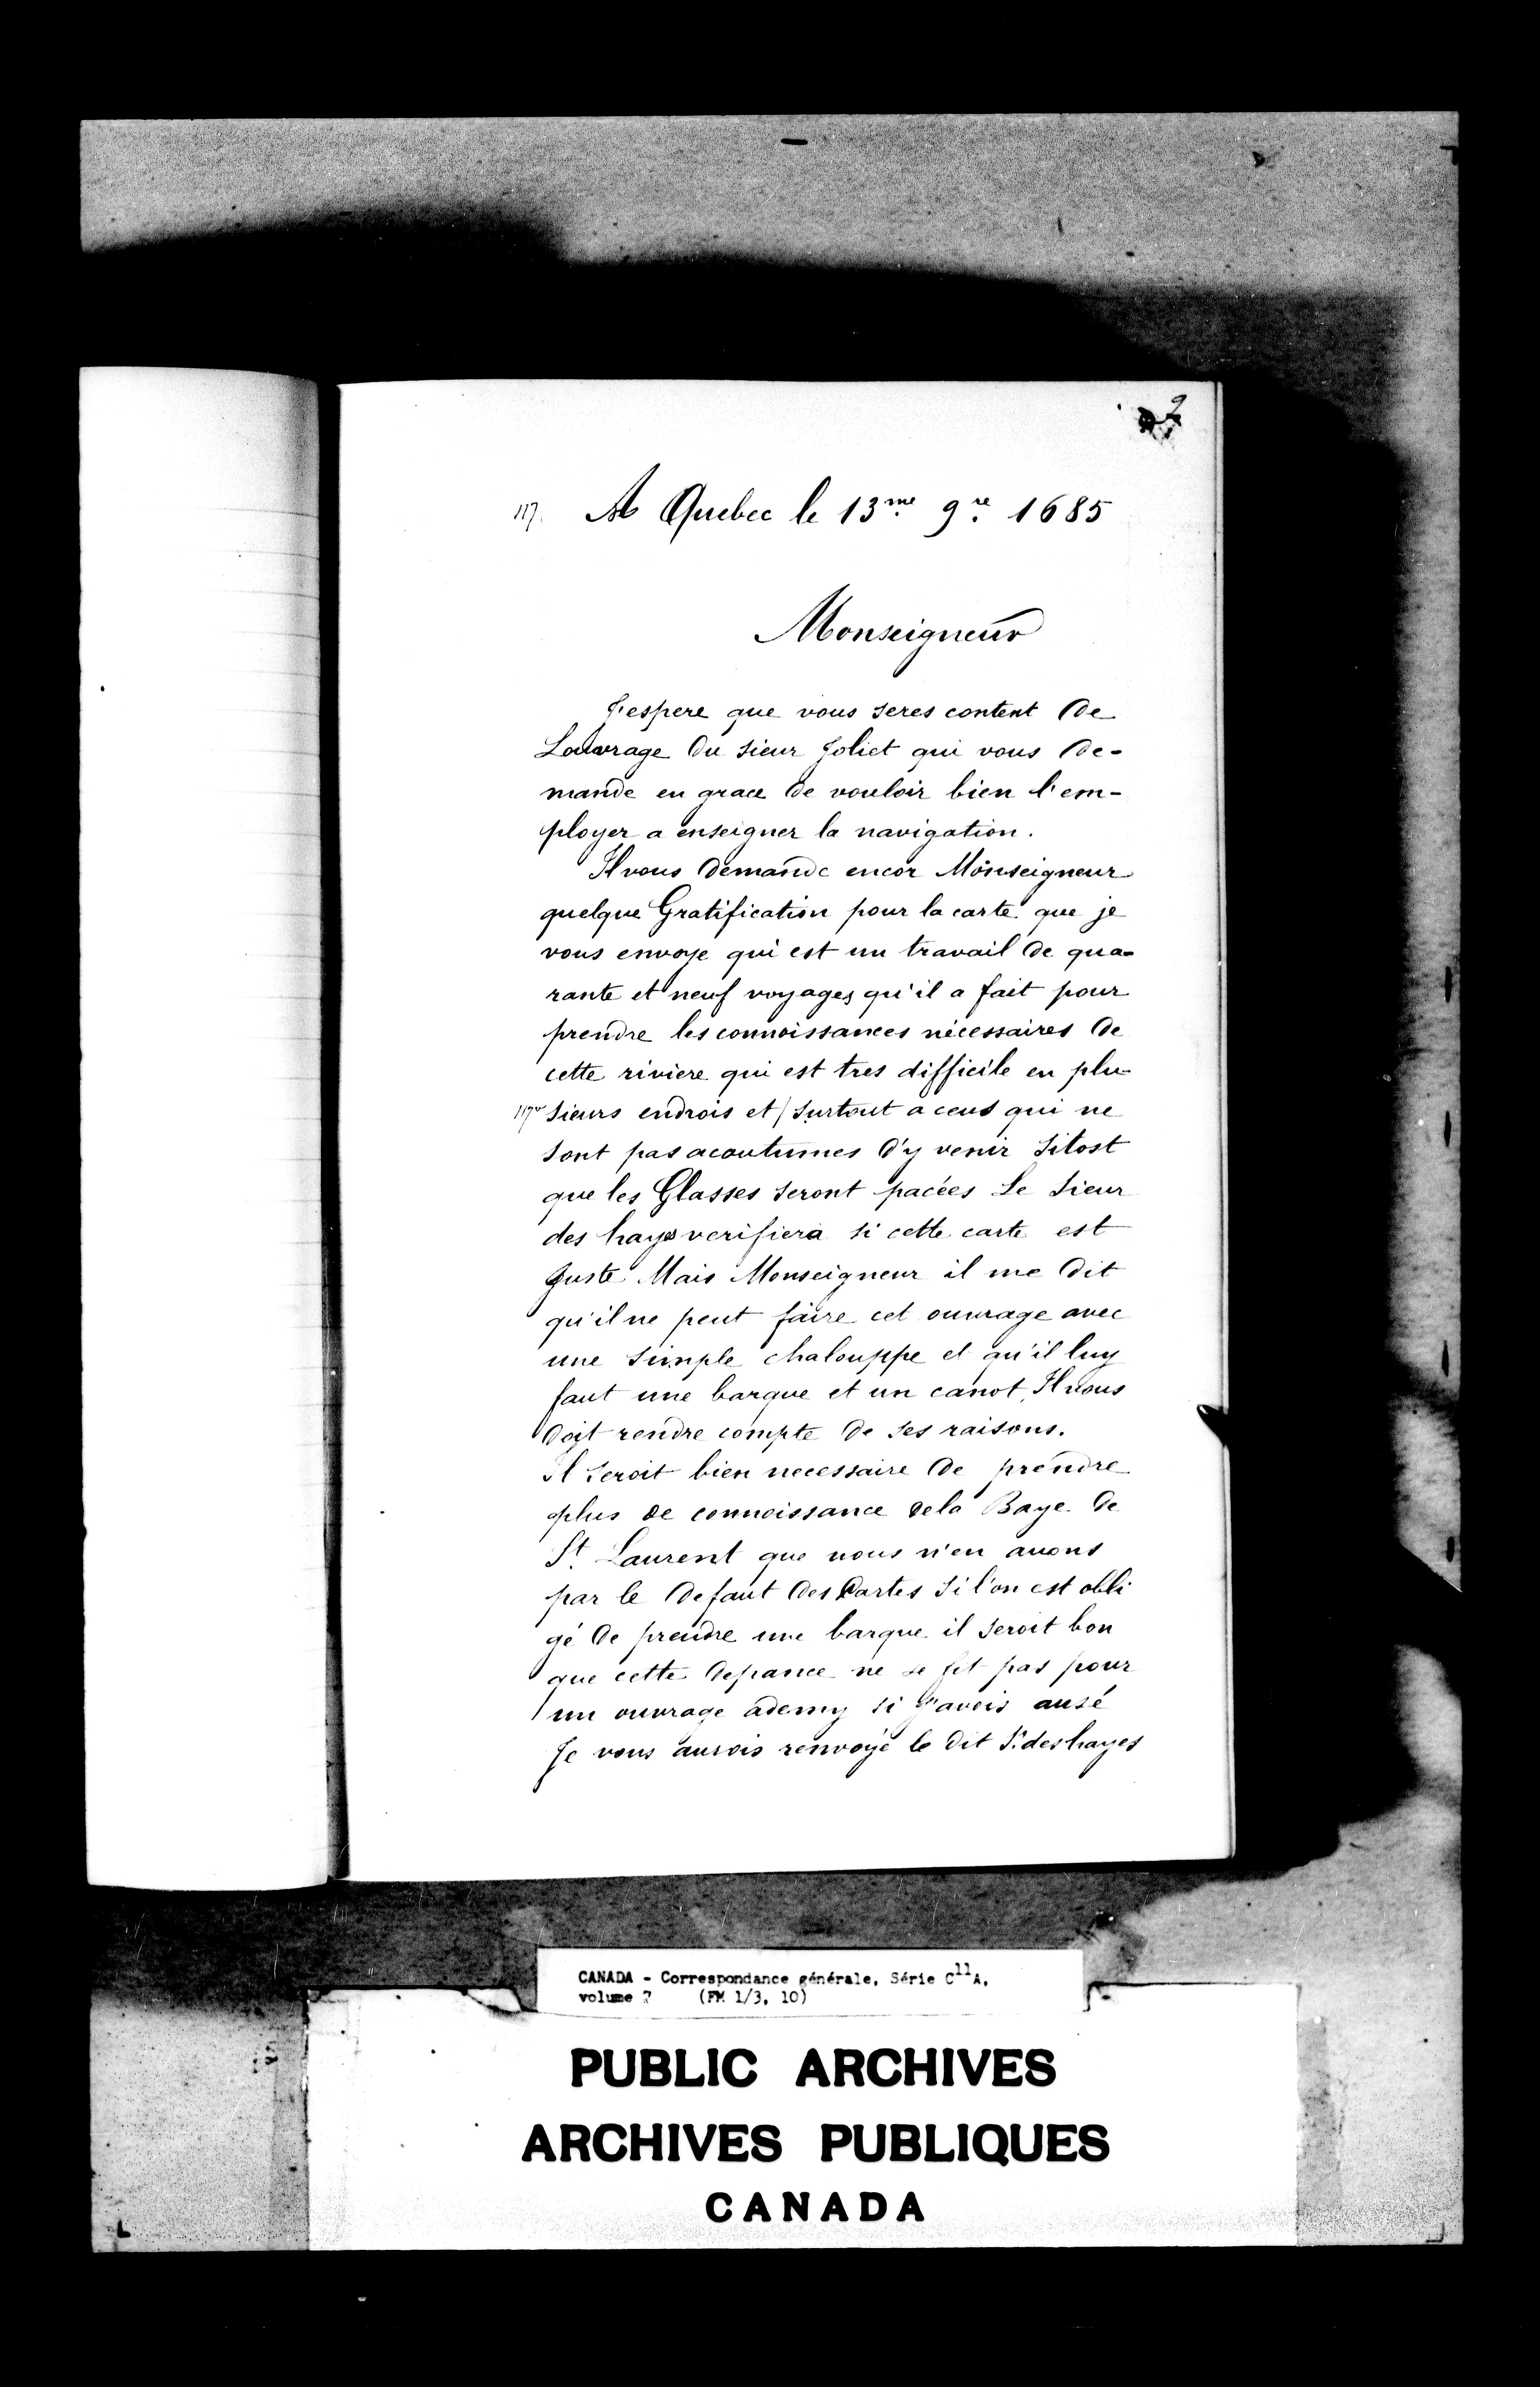 9
117. A Quebec le 13me 9re 1685
Monseigneur
J'espere que vous seres content de
Louvrage du sieur Joliet qui vous de-
mande en grace de vouloir bien l'em-
ployer a enseigner la navigation.
Il vous demande encor Monseigneur
quelque Gratification pour la carte que je
vous envoye qui est un travail de qua-
rante et neuf voyages qu'il a fait pour
prendre les connoissances nécessaires de
cette riviere qui est tres difficile en plu-
117vo sieurs endrois et / surtout a ceus qui ne
sont pas acoutumes d'y venir sitost
que les Glasses seront pacées Le sieur
des hayes verifiera si cette carte est
Juste Mais Monseigneur il me dit
qu'il ne peut faire cet ouvrage avec
une simple chalouppe et qu'il luy
faut une barque et un canot, Il vous
doit rendre compte de ses raisons.
Il seroit bien necessaire de prendre
plus de connoissance de la Baye de
St. Laurent que nous n'en avons
par le defaut des Cartes si l'on est obli
gé de prendre une barque il seroit bon
que cette depance ne se fit pas pour
un ouvrage ademy si j'avois ausé
Je vous aurois renvoyé le dit Sr. deshayes
CANADA - Correspondance générale, Série C11A,
volume 7 (FM 1/3, 10)
PUBLIC ARCHIVES
ARCHIVES PUBLIQUES
CANADA